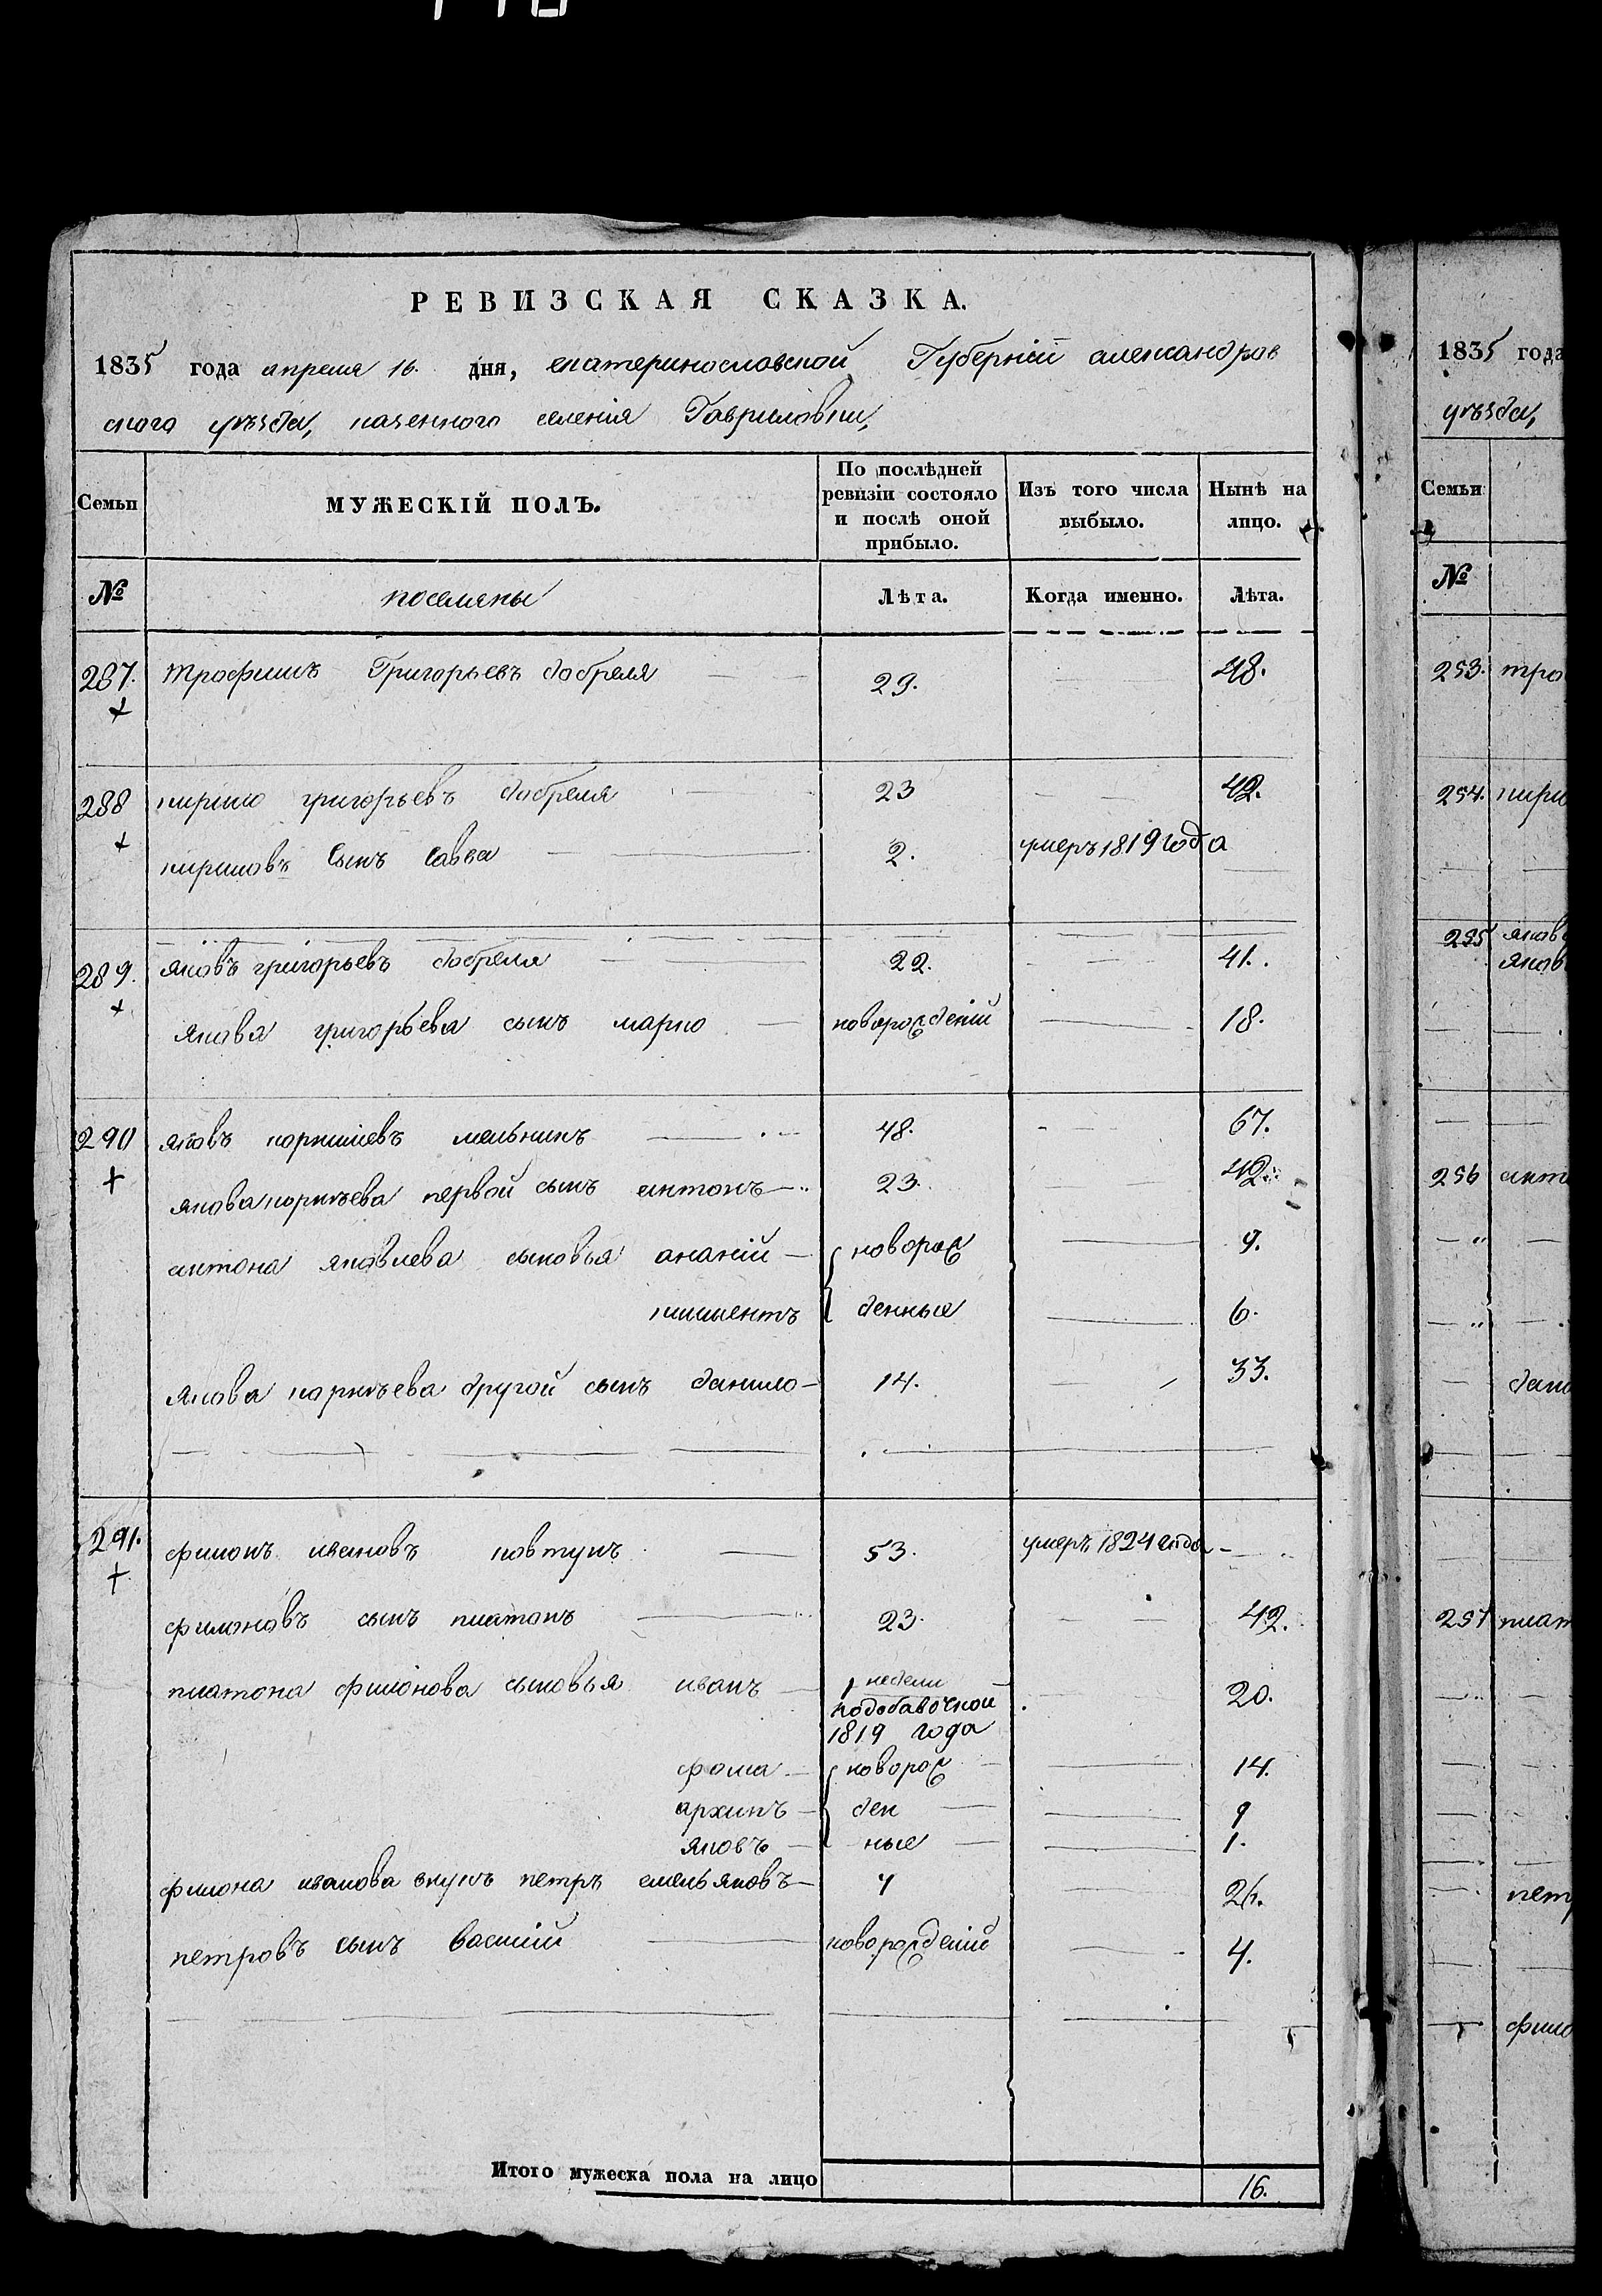 РЕВИЗСКАЯ СКАЗКА.
1835 года апреля 16. дня, екатеринославской Губерніи александров
ского уѣзда, казенного селенія Гавриловки,
Семьи
МУЖЕСКІЙ ПОЛЪ.
По послѣдней ревизіи состояло и послѣ оной прибыло.
Изъ того числа выбыло.
Нынѣ на лицо.
№ поселяны Лѣта. Когда именно. Лѣта.
287. трофимъ Григорьевъ бабреля 29. 48.
288 кирило григорьевъ бабреля 23 42.
кириловъ сынъ савва 2. умеръ 1819 года
289. яковъ григорьевъ бабреля 22. 41.
якова григорьева сынъ марко новорожденій 18.
290 яковъ корнѣевъ мельникъ 48. 67.
якова корнѣева первой сынъ антонъ 23. 42.
антона яковлева сыновья ананій новорож 9.
климентъ денные 6.
якова корнѣева другой сынъ данило 14. 33.
291. филонъ ивановъ ковтунъ 53. умеръ 1824 года
филоновъ сынъ платонъ 23. 42.
платона филонова сыновья иванъ 1 недели 20.
подобавочной
1819 года
фома новорож 14.
архипъ ден 9
яковъ ные 1.
филона иванова внукъ петръ емельяновъ 7 26.
петровъ сынъ василій новорожденій 4.
Итого мужеска пола на лицо 16.
1835 года
уѣзда,
Семьи
№
253. тро
254. кири
255 яков
яков
256 анто
дани
257 плат
петр
фило